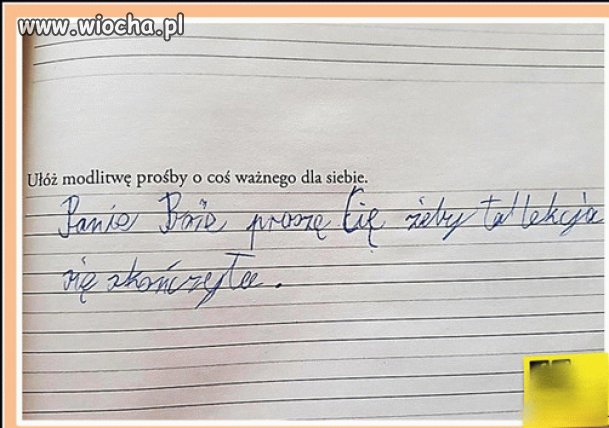 www.wiocha.pl
Ułóż modlitwę prośby o coś ważnego dla siebie.
Panie Boże proszę Cię żeby ta lekcja
się skończyła.